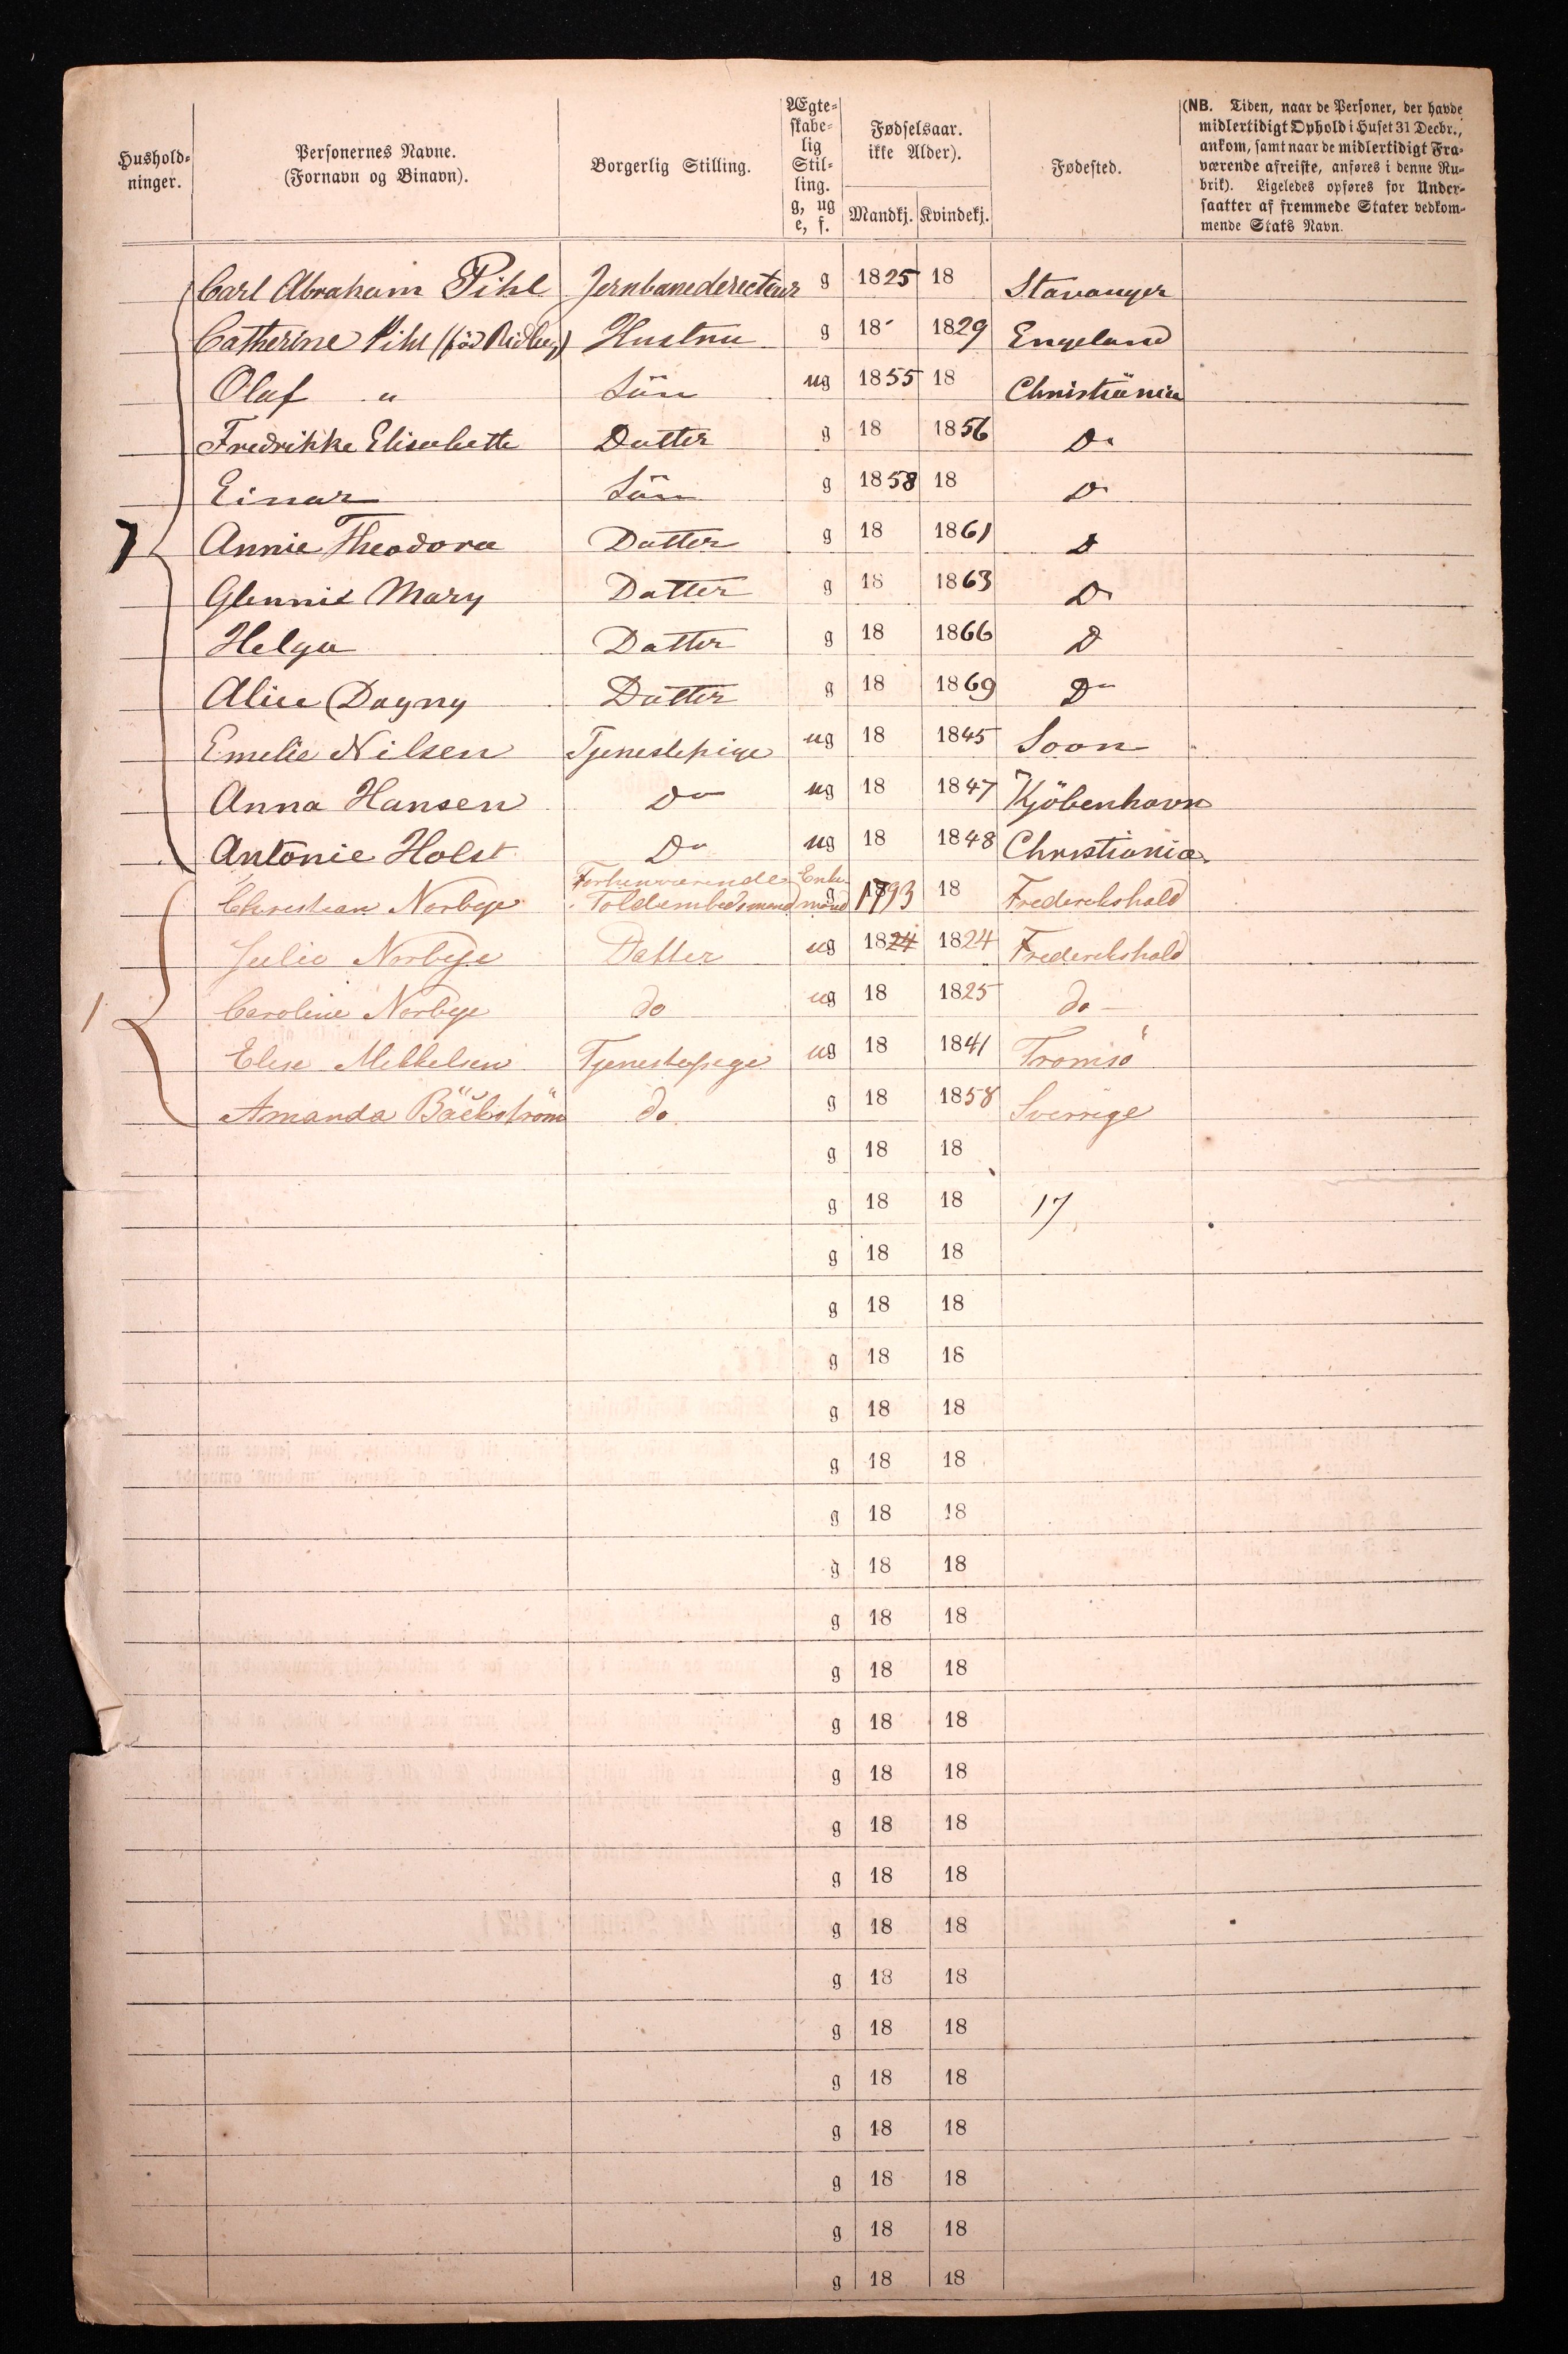 Hushold-
ninger.
Personernes Navne.
(Fornavn og Binavn).
Borgerlig Stilling.
Ægte-
skabe-
lig
Stil-
ling.
g, ug
e, f.
Fødselsaar.
ikke Alder).
Mandkj. Kvindekj.
Fødested.
(NB. Tiden, naar de Personer, der havde
midlertidigt Ophold i Huset 31 Decbr.,
ankom, samt naar de midlertidigt Fra-
værende afreiste, anføres i denne Ru-
brik). Ligeledes opføres for Under-
saatter af fremmede Stater vedkom-
mende Stats Navn.
Carl Abraham Pihl Jernbanedirecteur g 1825 18 Stavanger
Catherine Pihl (föd Ridley) Hustru g 18 1829 Engeland
Olaf " Sön ug 1855 18 Christiania
Fredrikke Elisabeth Datter g 18 1856 Do
Einar Sön g 1858 18 Do
1 Annie Theodora Datter g 18 1861 D
Glennie Mary Datter g 18 1863 Do
Helga Datter g 18 1866 D
Alice Dagny Datter g 18 1869 Do
Emelie Nilsen Tjenestepige ug 18 1845 Soon
Anna Hansen Do ug 18 1847 Kjöbenhavn
Antonie Holst Do ug 18 1848 Christiania
Christian Norbye Forhenværende Toldembedsmand Enkemand g 1793 18 Frederikshald
Julie Norbye Datter ug 1824 1824 Frederikshald
1 Caroline Norbye do ug 18 1825 do
Elise Mikkelsen Tjenestepige ug 18 1841 Tromsö
Amanda Bäckström do g 18 1858 Sverrige
g 18 18
g 18 18 17
g 18 18
g 18 18
g 18 18
g 18 18
g 18 18
g 18 18
g 18 18
g 18 18
g 18 18
g 18 18
g 18 18
g 18 18
g 18 18
g 18 18
g 18 18
g 18 18
g 18 18
g 18 18
g 18 18
g 18 18
g 18 18